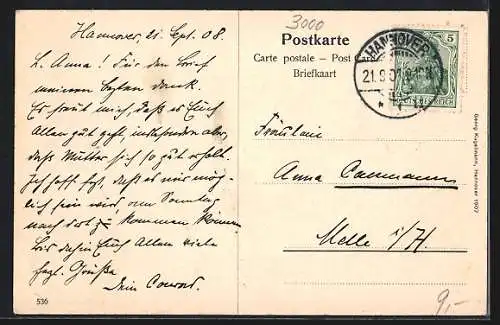 Hannover, 21. Sept. 08.
L. Anna! Für den Brief
meinen besten Dank.
Es freut mich, daß es Euch
Allen gut geht, insbesondere aber,
daß Mutter sich so gut erholt.
Ich hoffe fest, daß es mir mög-
lich sein wird, am Sonntag
nach dort zu kommen können
Bis dahin Euch Allen viele
hzgl. Grüße
Dein Conrad.
536
3000
Postkarte
Carte postale — Post Card
Briefkaart
HANNOVER
21.9.
5
DEUTSCHES REICH
Fräulein
Anna
Melle i/H.
Georg Kugelmann, Hannover 1907
9,-